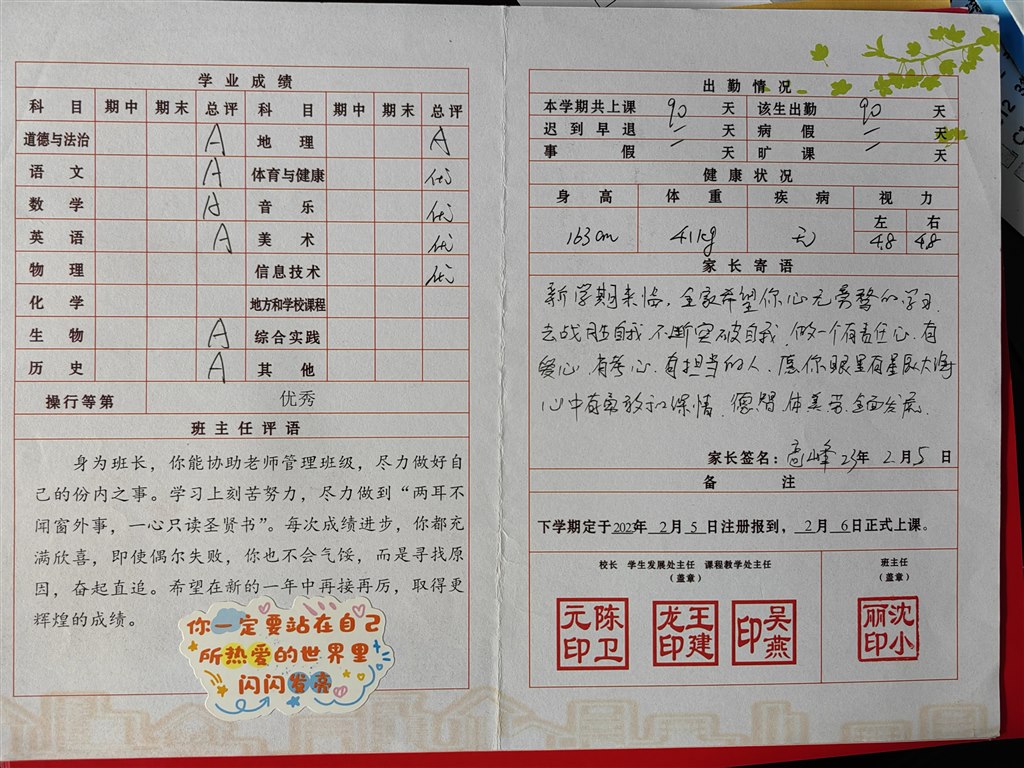 学业成绩
科目 期中 期末 总评 科目 期中 期末 总评
道德与法治 A 地理 A
语文 A 体育与健康 优
数学 A 音乐 优
英语 A 美术 优
物理 信息技术 优
化学 地方和学校课程
生物 A 综合实践
历史 A 其他
操行等第 优秀
班主任评语
身为班长，你能协助老师管理班级，尽力做好自
己的份内之事。学习上刻苦努力，尽力做到“两耳不
闻窗外事，一心只读圣贤书”。每次成绩进步，你都充
满欣喜，即使偶尔失败，你也不会气馁，而是寻找原
因，奋起直追。希望在新的一年中再接再厉，取得更
辉煌的成绩。
你一定要站在自己
所热爱的世界里
闪闪发亮
出勤情况
本学期共上课 90 天 该生出勤 90 天
迟到早退 天 病假 天
事假 天 旷课 天
健康状况
身高 体重 疾病 视力
左 右
163cm 41kg 无 4.8 4.8
家长寄语
新学期来临，全家希望你心无旁骛的学习
去战胜自我 不断突破自我，做一个有责任心、有
爱心、有孝心、有担当的人、愿你眼里有星辰大海
心中有 和深情，德智体美劳全面发展.
家长签名：高山峰 23年 2月5日
备注
下学期定于202年 2月5日注册报到，2月6日正式上课。
校长 学生发展处主任 课程教学处主任
（盖章）
班主任
（盖章）
陈卫元印
王建龙印
吴燕印
沈小丽印